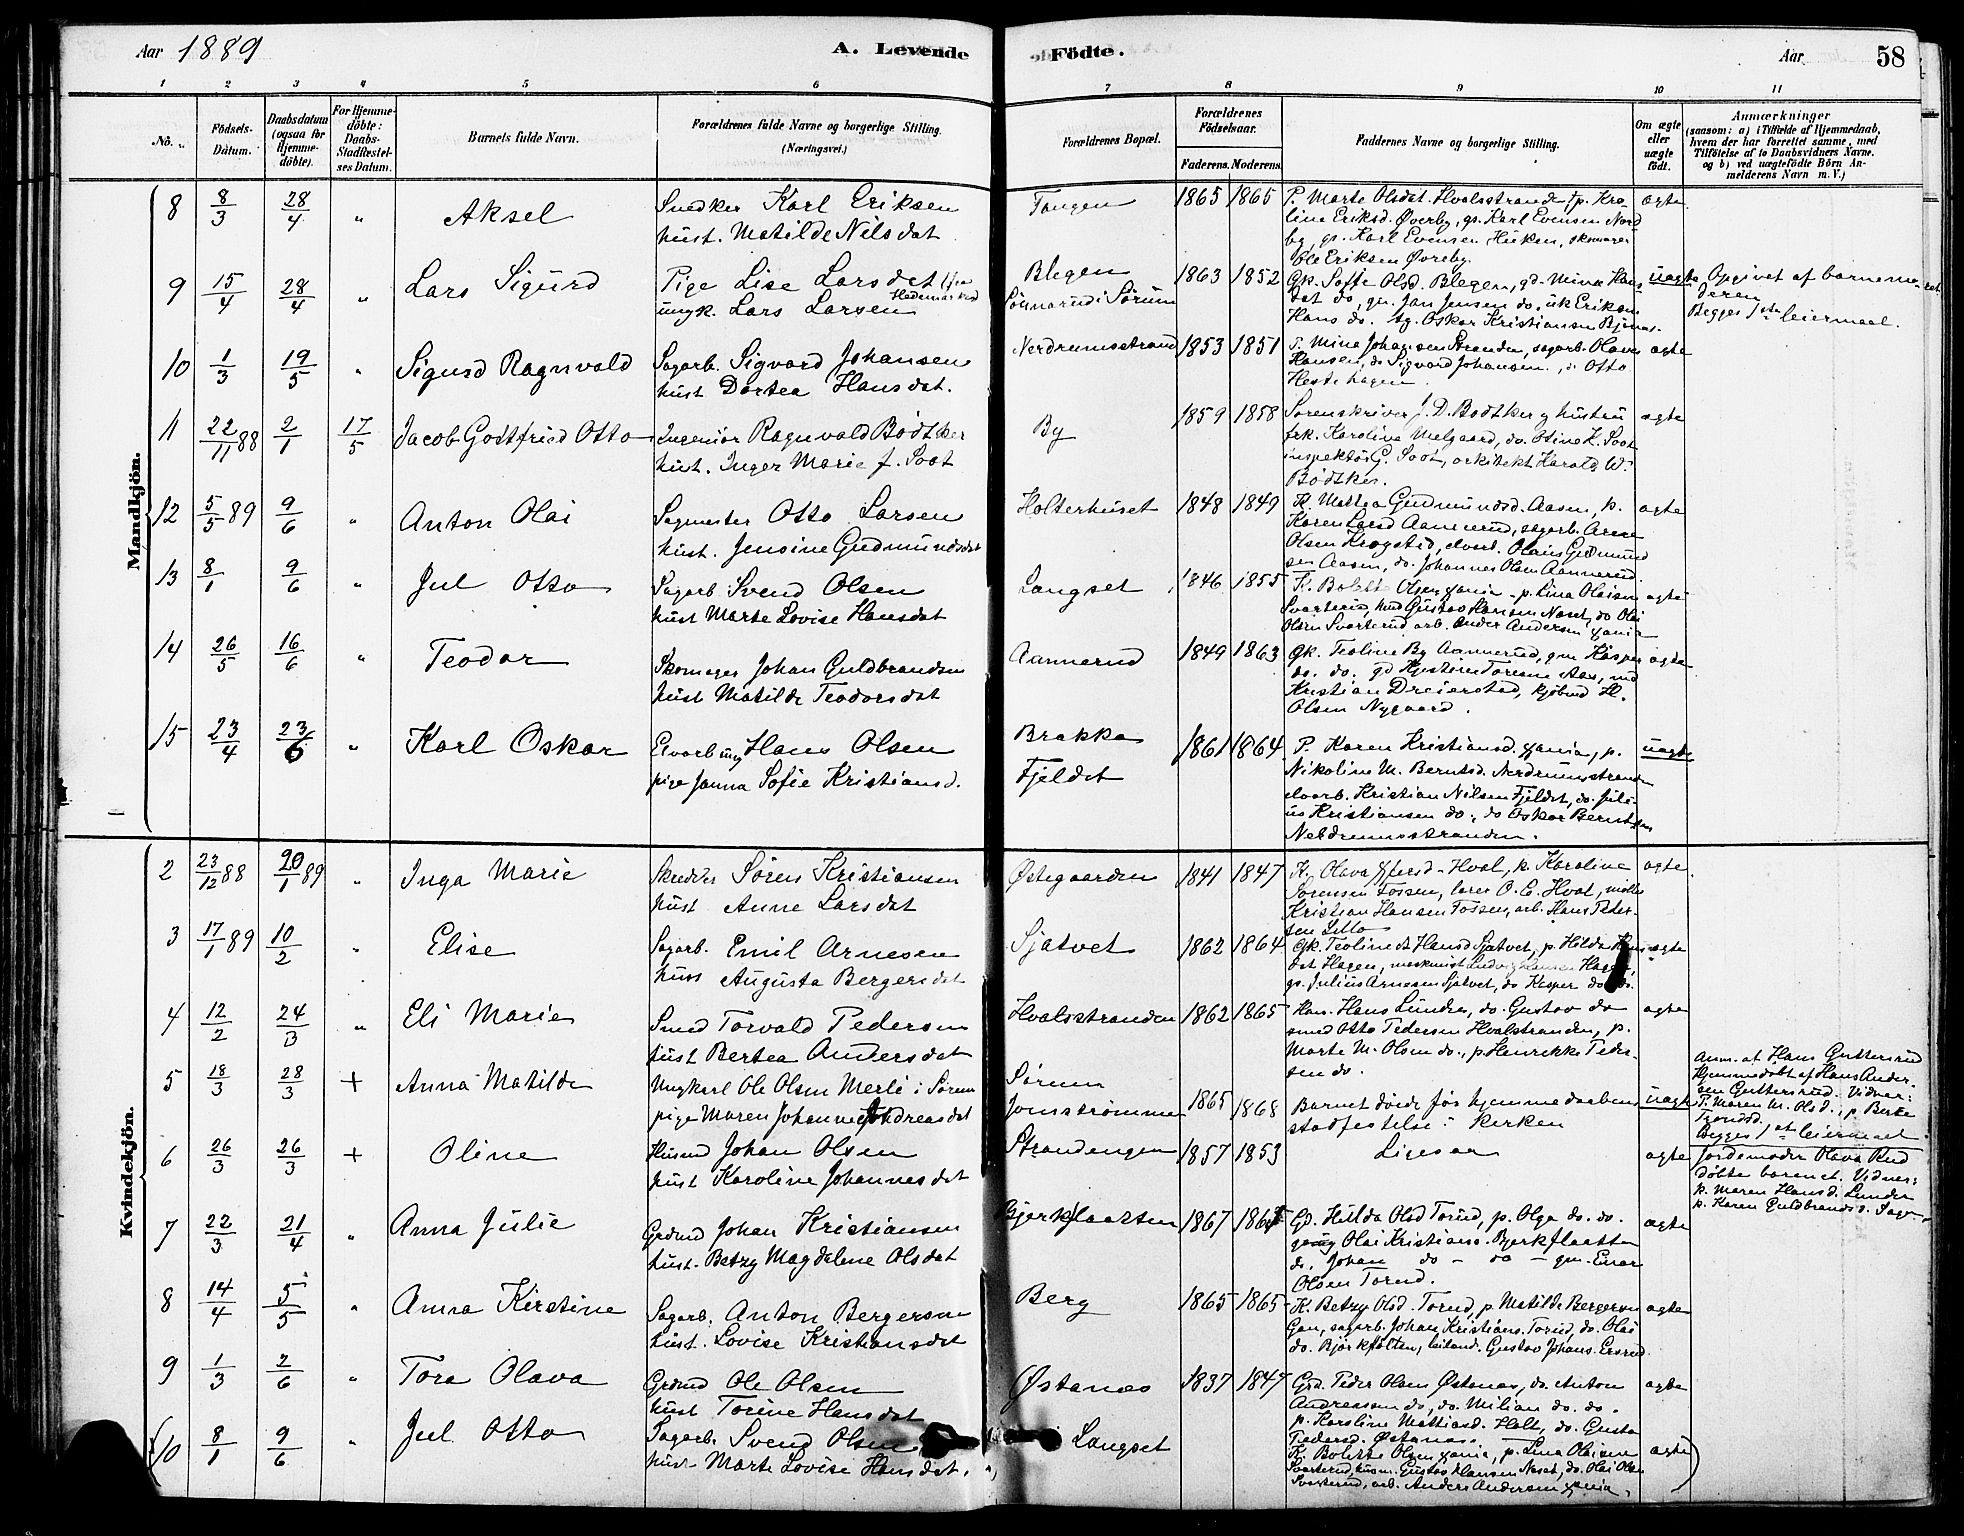 Aar 1889
A. Levende Födte.
Aar
58
1 2 3 4 5 6 7 8 9 10 11
No.
Födsels-Datum.
Daabsdatum (ogsaa for Hjemmedöbte).
For Hjemmedöbte: Daabs-Stadfæstelses Datum.
Barnets fulde Navn.
Forældrenes fulde Navne og borgerlige Stilling. (Næringsvei.)
Forældrenes Bopæl.
Forældrenes Födselsaar.
Faderens. Moderens.
Faddernes Navne og borgerlige Stilling.
Om ægte eller uægte födt.
Anmærkninger
(saasom: a) i Tilfælde af Hjemmedaab, hvem der har forrettet samme, med Tilföielse af to Daabsvidners Navne. og b) ved uægtefödte Börn Anmelderens Navn m. V.)
Mandkjön.
8 8/3 28/4 " Aksel Snedker Karl Eriksen Tangen 1865 1865 P. Marte Olsdat. Hvalsstrand, p. Kro- ægte
hust. Matilde Nilsdat line Eriksd. Øverby, gs. Karl Evensen Nord
by, gs. Karl Evensen Huken, skomager
Ole Eriksen Øvreby.
9 15/4 28/4 " Lars Sigurd Pige Lise Larsdat (fra Hedemarked Blegen 1863 1852 Gk. Sofie Olsd. Blegen, gd. Mina Hans uægte Opgivet af barnemo-
ungk. Lars Larsen Sønnerud i Sørum dat do, gm. Jan Jensen do, uk Erik deren
Hans do. tg. Oskar Kristiansen Begges 1ste leiermaal.
10 1/3 19/5 " Sigurd Ragnvald Sagarb. Sigvard Johansen Nerdrumsstrand 1853 1851 P. Mina Johansen Stranden, sagarb. Olaves ægte
hust Dortea Hansdat. Hansen, do Sigvard Johansen, do Otto
Hestehagen.
11 22/11 88 2/1 17/5 Jacob Gottfried Otto Ingeniør Ragnvald Bødtker By 1859 1858 Sorenskriver J. D. Bødtker og hustru ægte
hust. Inger Marie f. Soot frk. Karoline Melgaard, do. Stine K. Soot
inspektør G. Soot, arkitekt Harald W.
Bødtker.
12 5/5 89 9/6 " Anton Olai Sagmester Otto Larsen Holterhuset 1848 1849 K. Mattea Gudmundsd. Aasen, p. ægte
hust. Jensine Gudmundsdat Karen Larsd Aannerud, sagarb. Arne
Olsen Krogsted, elvarb. Olaus Gudmund
sen Aasen, do. Johannes Olsen Aannerud.
13 8/1 9/6 " Jul Otto Sagarb Svend Olsen Langset 1846 1855 K. Bolette Olsen Xania, p. Lina Olaisen ægte
hust Marte Lovise Hansdat Svarterud, husm Gustav Hansen Næset, do Olai
Olsen Svarterud, arb. Anders Andersen Xania
14 26/5 16/6 " Teodor Skomager Johan Guldbrandsen Aannerud 1849 1863 Gk. Teoline By Aannerud, gm Kasper ægte
hust Matilde Teodorsdat do. do. gd Kjestine Aas,
Kristian Dreiersted, kjøbmd H.
Olsen Nygaard.
15 23/4 23/6 " Karl Oskar Elvarb ung Hans Olsen Brakka 1861 1864 P. Karen Kristiansd. Xania, p. uægte
pige Janna Sofie Kristiansd. Fjeldet Nikoline M. Berntsd. Nerdrumsstranden
elvarb. Kristian Nilsen Fjeldet, do. Juli-
us Kristiansen do, do Oskar Berntsen
Nerdrumsstranden.
Kvindekjön.
2 23/12 88 20/1 89 " Inga Marie Skrædder Søren Kristiansen Østegaarden 1841 1847 K. Olava Hval, p. Karoline ægte
hust Anne Larsdat Sørensen Fossen, lærer O. E. Hval, møller
Kristian Hansen Fossen, arb. Hans Peder-
sen
3 17/1 89 10/2 " Elise Sagarb. Emil Arnesen Sjatvet 1862 1864 Gk. Teoline Hansd Sjatvet, p. Hilda Hans- ægte
hust Augusta Bergersdat dat Hagen, maskinist Ludvig Hansen Hagen,
gs. Julius Arnesen Sjatvet, do Kasper do do.
4 12/2 24/3 " Eli Marie Smed Torvald Pedersen Hvalsstranden 1862 1865 Hans Lunder, do. Gustav do ægte
hust Bertea Andersdat smed Otto Pedersen Hvalstranden, p.
Marte M. Olsen do., p Henrikke Peder-
sen do.
5 18/3 28/3 + Anna Matilde Ungkarl Ole Olsen Merli i Sørum Sørum 1865 1868 Barnet døde før hjemmedaabens uægte Anm. af Hans Guttersrud
pige Maren Johanne Andreasdat Jonsstrømmen stadfestelse i kirken Hjemmedøbt af Hans Ander-
sen Guttersrud. Vidner:
P. Maren M. Olsd., p. Berte
Begges 1ste leiermaal.
6 26/3 26/3 + Oline Husmd Johan Olsen Strandengen 1857 1853 Ligesaa ægte Jordemoder Olava Rud
hust Karoline Johannesdat døbte barnet. Vidner:
k. Maren Hansd. Lunder
p. Karen Guldbrandsd.
7 22/3 21/4 " Anna Julie Grdmd Johan Kristiansen Bjerkflaatten 1867 Gd. Hulda Olsd Torud, p. Olga do. do. ægte
hust. Betzy Magdalene Olsdat Olai Kristians. Bjerkflaatten
do. Johan do - do - gm. Einar
Olsen Torud.
8 14/4 5/5 " Anna Kirstine Sagarb. Anton Bergersen Berg 1865 1865 K. Betzy Olsd. Torud, p Matilde Bergersen ægte
hust. Lovise Kristiansdat Gan, sagarb. Johan Kristians. Torud, do. Olai
do. Bjørkflatten, leiland. Gustav Johans. Ersrud.
9 1/3 2/6 " Tora Olava Grdmd Ole Olsen Østanæs 1837 1847 Grd. Peder Olsen Østanæs, do. Anton ægte
hust Torine Hansdat Andreassen do, do. Milian do. do.
p. Karoline Mattiasd. Holt, do. Gusta
Pedersd. Østanæs.
(10 8/1 9/6 " Jul Otto Sagarb. Svend Olsen Langset K. Bolette Olsen Xania, p. Lina Olaisen ægte)
hust Marte Lovise Hansdat. Svarterud, husm. Gustav Hansen Næset, do. Olai Olsen
Svarterud, arb. Anders Andersen Xania.